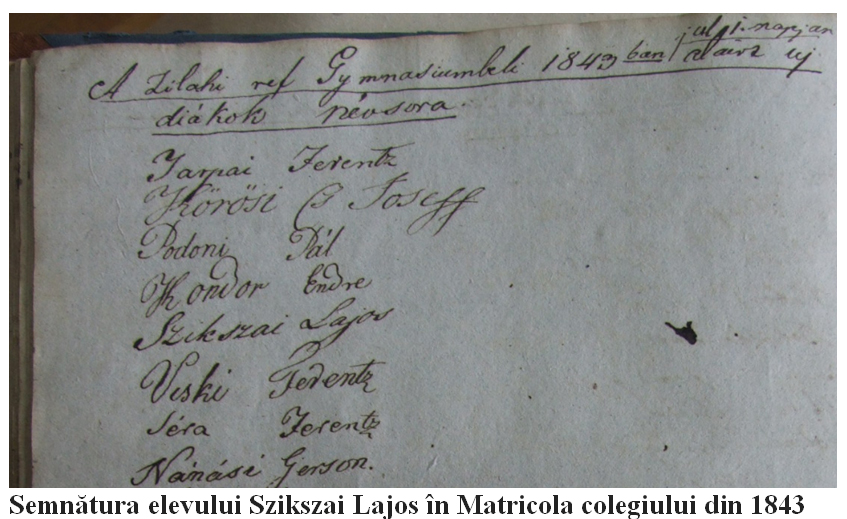 júl 1. napján
A Zilahi ref Gymnasiumbeli 1843 ban aláirt uj
diákok névsora.
Tarpai Ferentz
Körösi Cs Joseff
Podoni Pál
Kondor Endre
Szikszai Lajos
Veski Ferentz
Séra Ferentz
Nánási Gerson.
Semnătura elevului Szikszai Lajos în Matricola colegiului din 1843